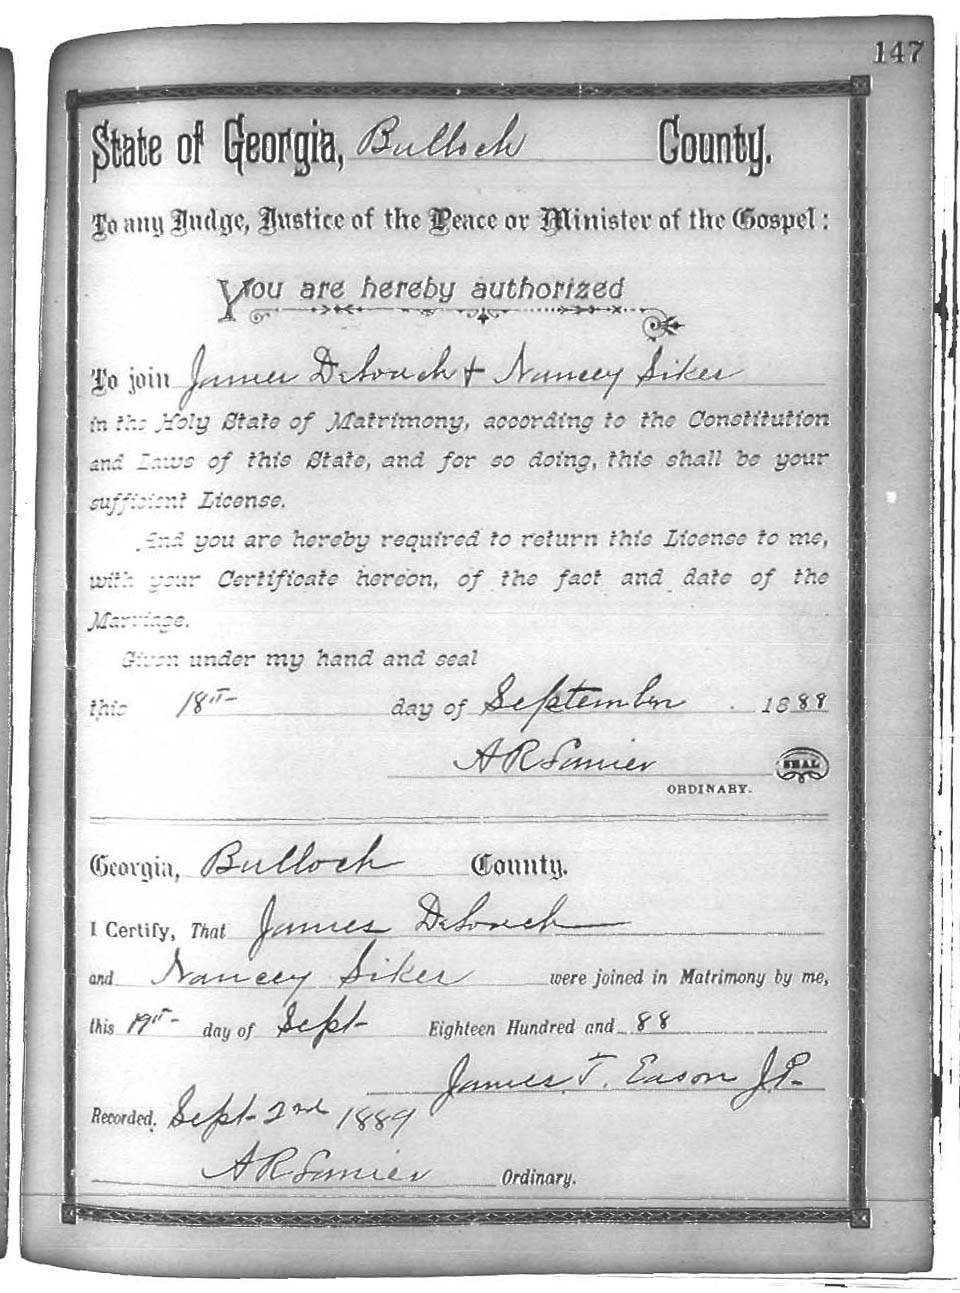 147
State of Georgia, Bulloch County.
To any Judge, Justice of the Peace or Minister of the Gospel:
You are hereby authorized
To join James DeLouch & Nancey Siker
in the Holy State of Matrimony, according to the Constitution
and Laws of this State, and for so doing, this shall be your
sufficient License.
And you are hereby required to return this License to me,
with your Certificate hereon, of the fact and date of the
Marriage.
Given under my hand and seal
this 18th day of September 1888
A R Lanier SEAL
ORDINARY.
Georgia, Bulloch County.
I Certify, That James DeLouch
and Nancey Siker were joined in Matrimony by me,
this 19th day of Sept Eighteen Hundred and 88
James T. Eason J.P.
Recorded, Sept 2nd 1889
A R Lanier Ordinary.